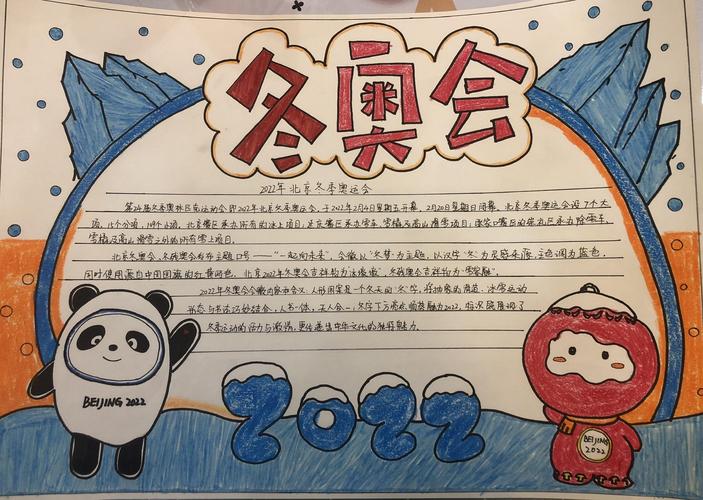 冬奥会
2022年北京冬季奥运会
第24届冬季奥林匹克运动会即2022年北京冬季奥运会,于2022年2月4日星期五开幕,2月20日星期日闭幕。北京冬季奥运会设7个大
项,15个分项,109个小项。北京赛区承办所有的冰上项目,延庆赛区承办雪车、雪橇及高山滑雪项目;张家口赛区的崇礼区承办除雪车、
雪橇及高山滑雪之外的所有雪上项目。
北京冬奥会、冬残奥会发布主题口号——“一起向未来”,会徽以“冬梦”为主题,以汉字“冬”为灵感来源,主色调为蓝色,
同时使用源自中国国旗的红黄两色,北京2022年冬奥会吉祥物为“冰墩墩”,冬残奥会吉祥物为“雪容融”。
2022年冬奥会会徽内容和含义:人形图案是一个冬天的“冬”字,将抽象的滑道、冰雪运动
形态与书法巧妙结合,人书一体,天人合一,冬字下方两点顺势融为2022,
冬季运动的活力与激情,更传递出中华文化的独特魅力。
BEIJING 2022
2022
BEIJING
2022